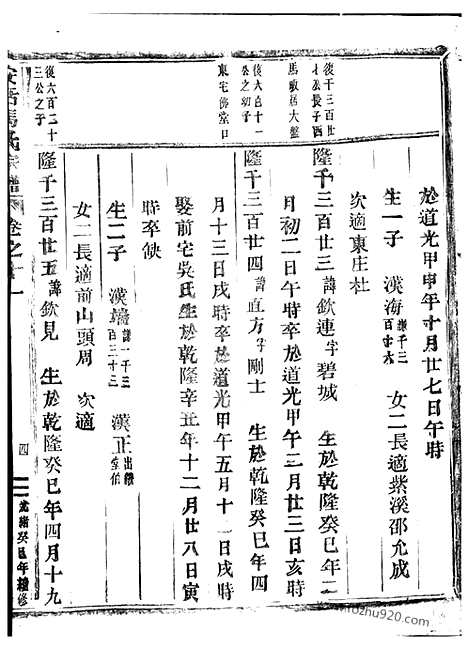 於道光甲申年十月廿七日午時
生一子 漢海 譜千三百廿六 女二長適紫溪邵允成
次適東庄杜
後千三百廿 馬岐居大盤
隆千三百廿三 諱欽連字碧城 生於乾隆癸巳年二
月初二日午時卒於道光甲午三月廿三日亥時
後六百十一公之幼子 東宅佛堂口
隆千三百廿四 諱直方字剛士 生於乾隆癸巳年四
月十三日戌時卒於道光甲午五月十一日戌時
娶前宅吳氏生於乾隆辛丑年十二月廿八日寅
時卒缺
生二子 漢端 譜一千三百三十三 漢正 出繼堂伯
女二長適前山頭周 次適
後六百二十三公之子
隆千三百廿五 諱欽見 生於乾隆癸巳年四月十九
馬氏宗譜 卷之十一
四
光緒癸巳年續修